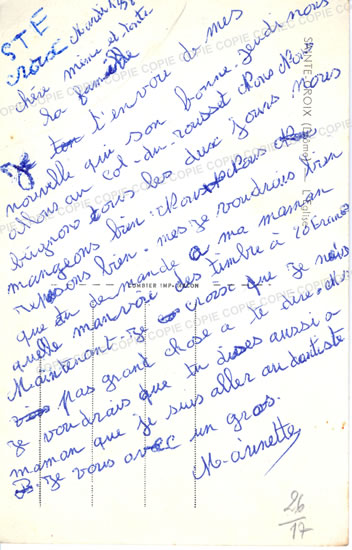 STE
croix
chère mémé et tonto
la famille
Je t'envoie de mes
nouvelle qui son bonne. jeudi nous
allons au Col-du-rousset Nous Nous
baignons tous les deux jours nous
mangeons bien Nous Nous
reposons bien. mes je voudrais bien
que tu demande a ma maman
quelle m'anvoie des timbre à
Maintenant. Je crois que je n'ais
pas grand chose a te dire.
je voudrais que tu dises aussi a
maman que je suis aller au dentiste
Je vous avec un gros.
M-annette
26
17
SAINTE-CROIX (Drôme) L'Église
COMBIER IMP. MACON
COPIE COPIE COPIE COPIE